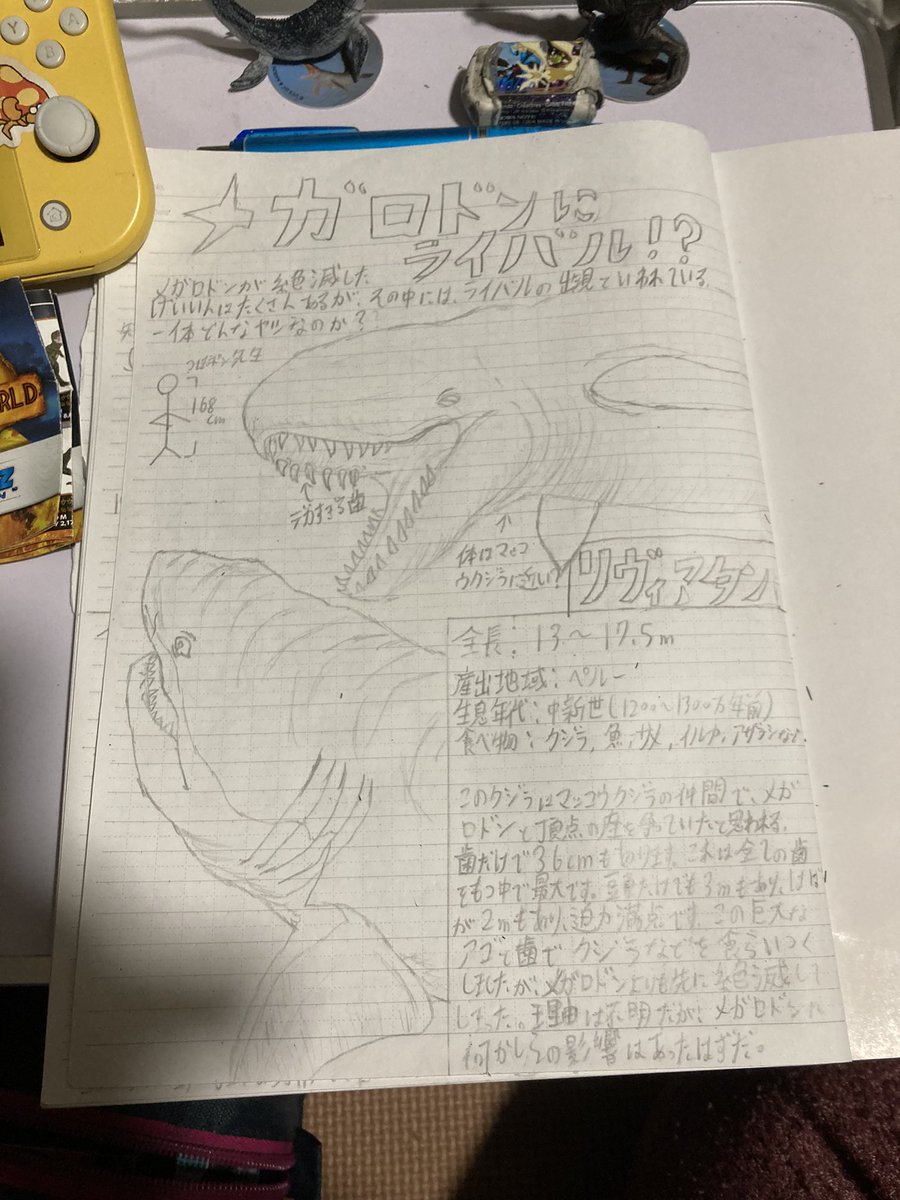 メガロドンに
ライバル!?
メガロドンが絶滅した
けいいんはたくさんあるが、その中には、ライバルの出現といわれている。
一体どんなヤツなのか?
先生
168
cm
デカすぎる歯
体はマッコ
ウクジラに近い?
リヴィアタン
全長:13〜17.5m
産出地域:ペルー
生息年代:中新世(1200〜1300万年前)
食べ物:クジラ,魚,サメ,イルカ,アザラシなど
このクジラはマッコウクジラの仲間で、メガ
ロドンと頂点の座を争っていたと思われる。
歯だけで36cmもあります。これは全ての歯
をもつ中で最大です。頭だけでも3mもあり、はば
が2mもあり、迫力満点です。この巨大な
アゴと歯でクジラなどを食らいつく
しましたが、メガロドンよりも先に絶滅して
しまった。理由は不明だが、メガロドンに
何かしらの影響はあったはずだ。
Y
X
B
A
RLD